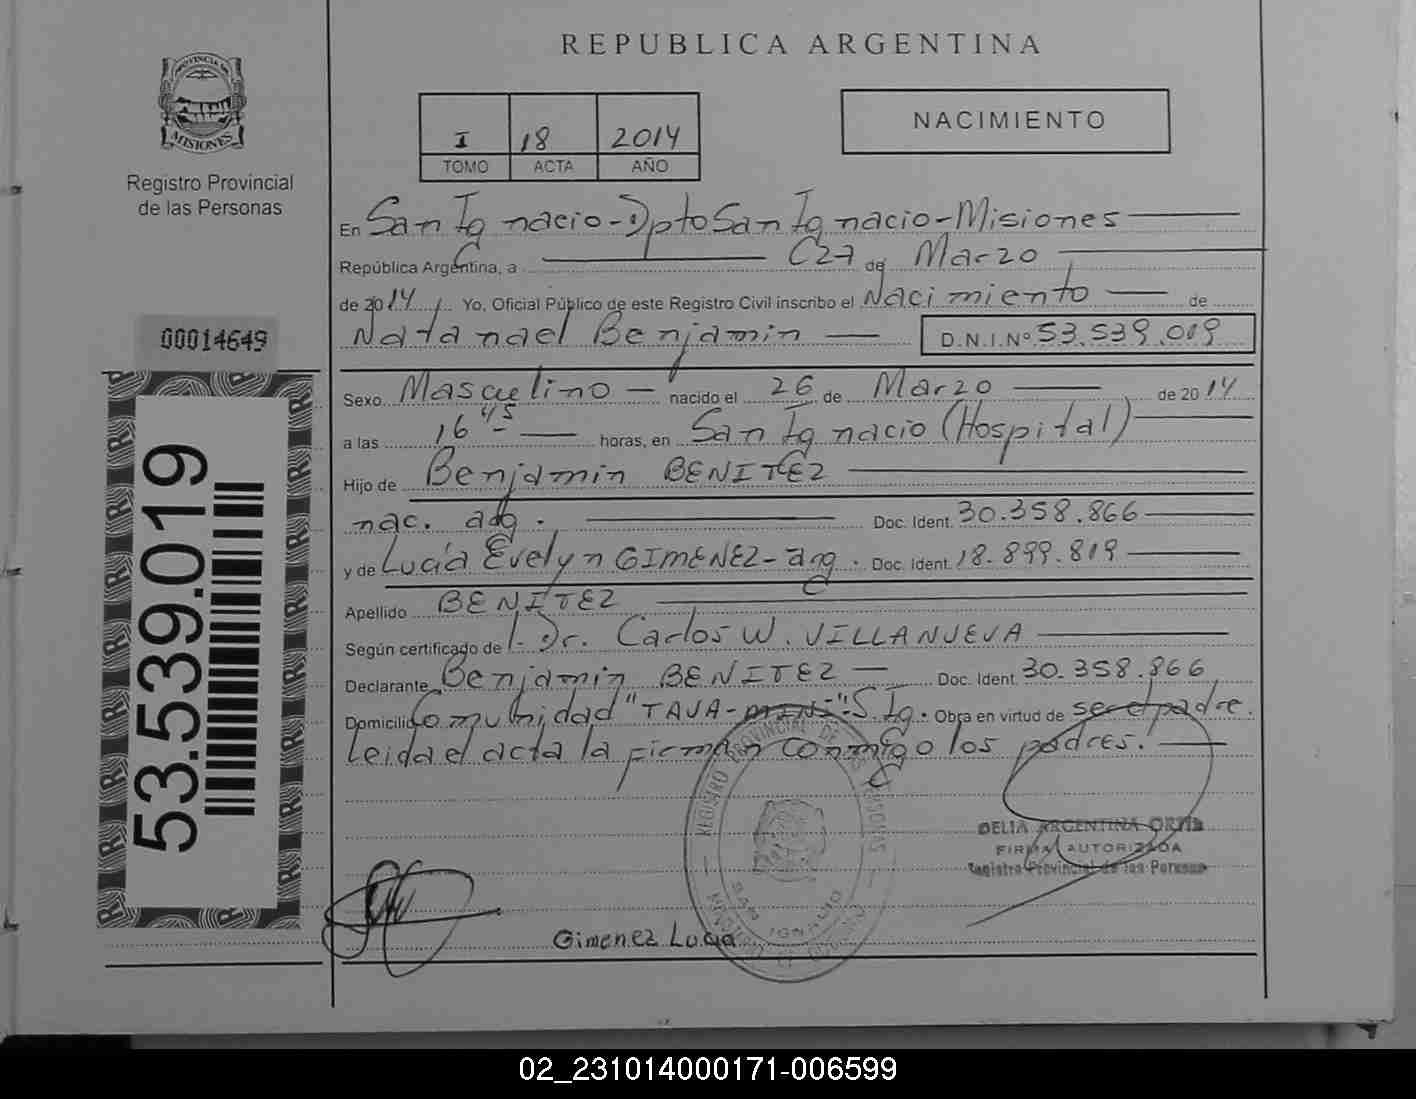 REPUBLICA ARGENTINA
PROVINCIA DE
MISIONES
Registro Provincial
de las Personas
I 18 2014
TOMO ACTA AÑO
NACIMIENTO
En San Ignacio - Dpto San Ignacio - Misiones
República Argentina, a C27 de Marzo
de 2014 Yo, Oficial Público de este Registro Civil inscribo el Nacimiento de
Natanael Benjamin D.N.I.Nº 53.539.019
00014649
53.539.019
Sexo Masculino nacido el 26 de Marzo de 2014
a las 16 45 horas, en San Ignacio (Hospital)
Hijo de Benjamin BENITEZ
nac. arg. Doc. Ident. 30.358.866
y de Lucia Evelyn GIMENEZ - arg. Doc. Ident. 18.899.819
Apellido BENITEZ
Según certificado de Dr. Carlos W. VILLANUEVA
Declarante Benjamin BENITEZ Doc. Ident. 30.358.866
Domicilio Comunidad "TAVA-MINI" S. Ig. Obra en virtud de ser el padre.
Leida el acta la firman conmigo los padres.
REGISTRO PROVINCIAL DE LAS PERSONAS
SAN IGNACIO
DELIA ARGENTINA ORTIZ
FIRMA AUTORIZADA
Registro Provincial de las Personas
Gimenez Lucia
02_231014000171-006599